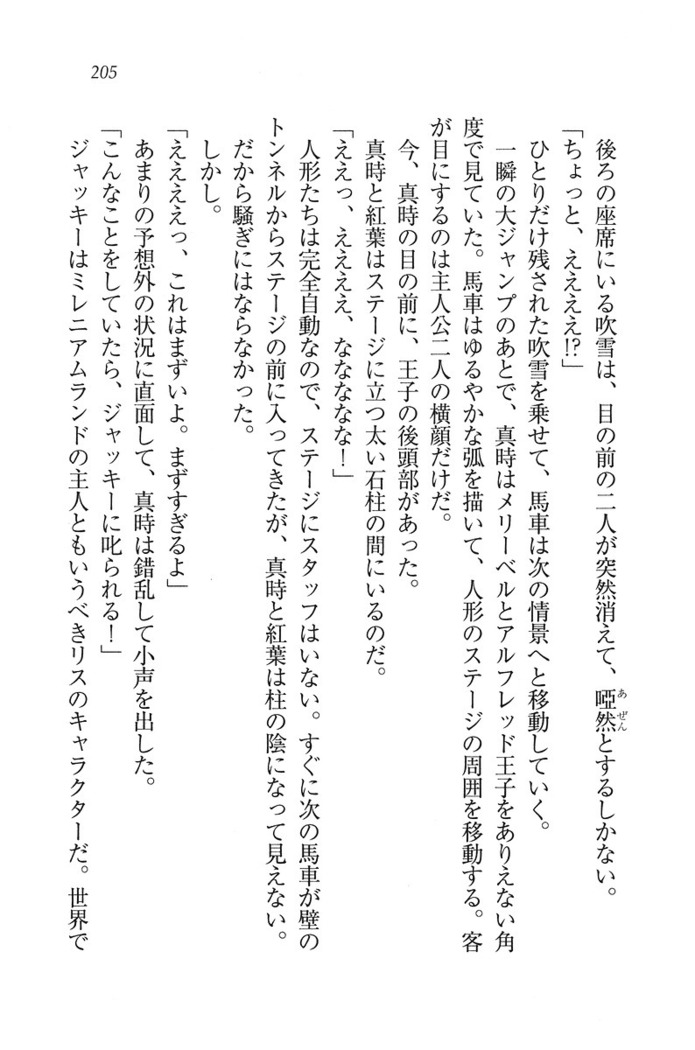 205
後ろの座席にいる吹雪は、目の前の二人が突然消えて、啞然とするしかない。
「ちょっと、ええええ!?」
ひとりだけ残された吹雪を乗せて、馬車は次の情景へと移動していく。
一瞬の大ジャンプのあとで、真時はメリーベルとアルフレッド王子をありえない角
度で見ていた。馬車はゆるやかな弧を描いて、人形のステージの周囲を移動する。客
が目にするのは主人公二人の横顔だけだ。
今、真時の目の前に、王子の後頭部があった。
真時と紅葉はステージに立つ太い石柱の間にいるのだ。
「ええっ、ええええ、ななななな！」
人形たちは完全自動なので、ステージにスタッフはいない。すぐに次の馬車が壁の
トンネルからステージの前に入ってきたが、真時と紅葉は柱の陰になって見えない。
だから騒ぎにはならなかった。
しかし。
「ええええっ、これはまずいよ。まずすぎるよ」
あまりの予想外の状況に直面して、真時は錯乱して小声を出した。
「こんなことをしていたら、ジャッキーに叱られる！」
ジャッキーはミレニアムランドの主人ともいうべきリスのキャラクターだ。世界で